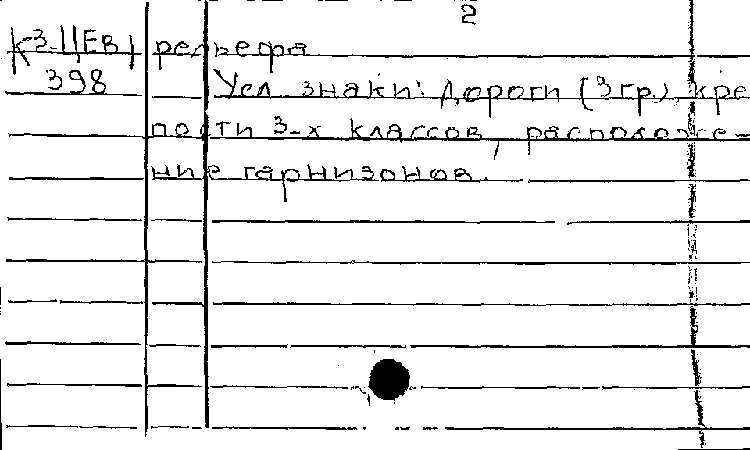 2
К 3-ЦЕВ 1 рельефа.
398 Усл. знаки: дороги (3 гр.), кре-
пости 3-х классов, расположе-
ние гарнизонов.